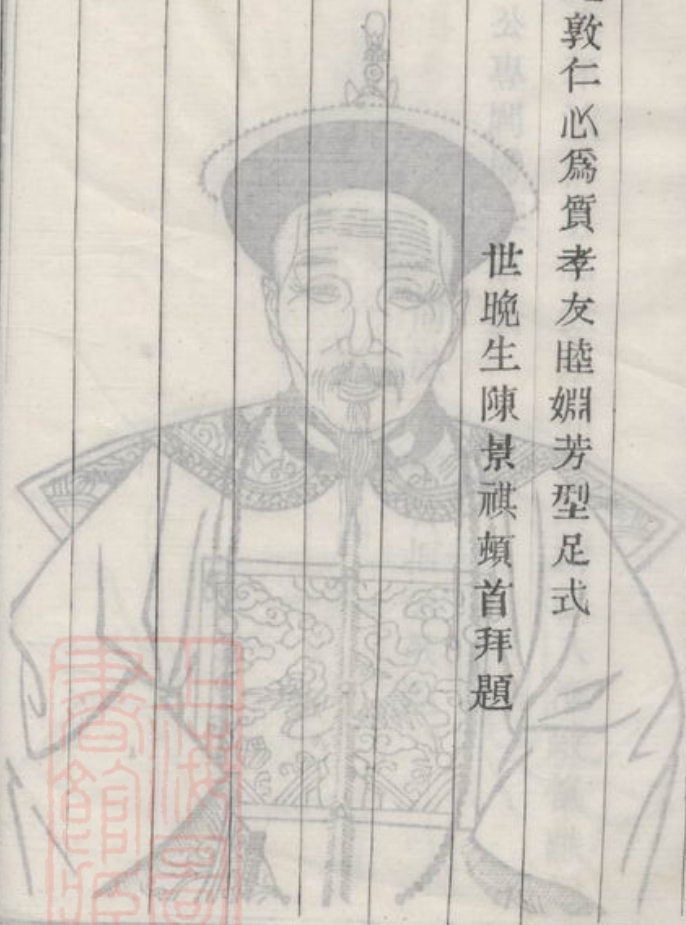 敦仁必爲質孝友睦婣芳型足式
世晚生陳景祺頓首拜題